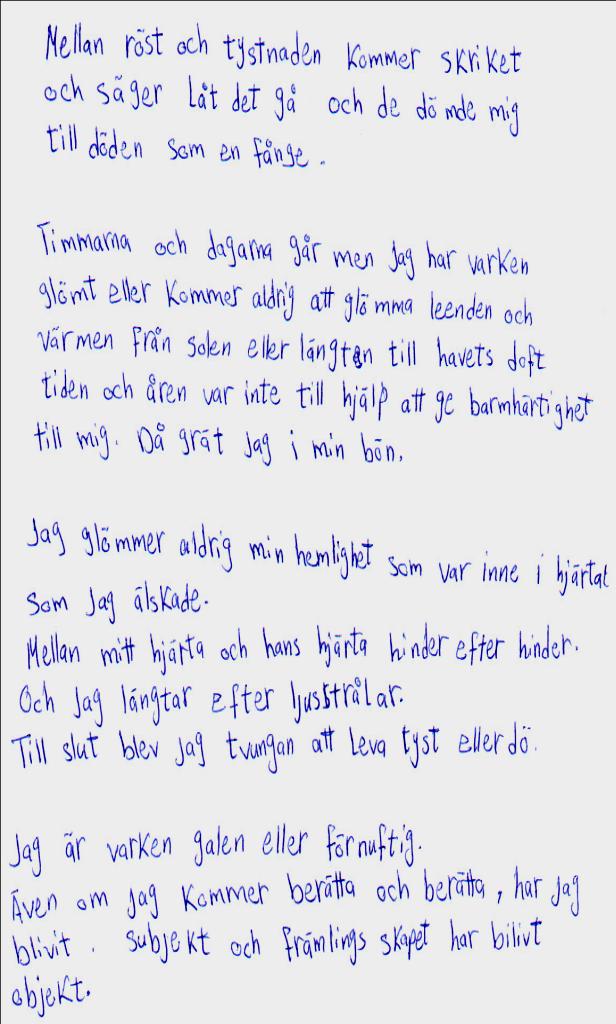 Mellan röst och tystnaden kommer skriket
och säger låt det gå och de dömde mig
till döden som en fånge.
Timmarna och dagarna går men jag har varken
glömt eller kommer aldrig att glömma leenden och
värmen från solen eller längtan till havets doft
tiden och åren var inte till hjälp att ge barmhärtighet
till mig. Då grät jag i min bön.
Jag glömmer aldrig min hemlighet som var inne i hjärtat
som jag älskade.
Mellan mitt hjärta och hans hjärta hinder efter hinder.
Och jag längtar efter ljusstrålar.
Till slut blev jag tvungan att leva tyst eller dö.
Jag är varken galen eller förnuftig.
Även om jag kommer berätta och berätta, har jag
blivit. subjekt och främlings skapet har bilivt
objekt.